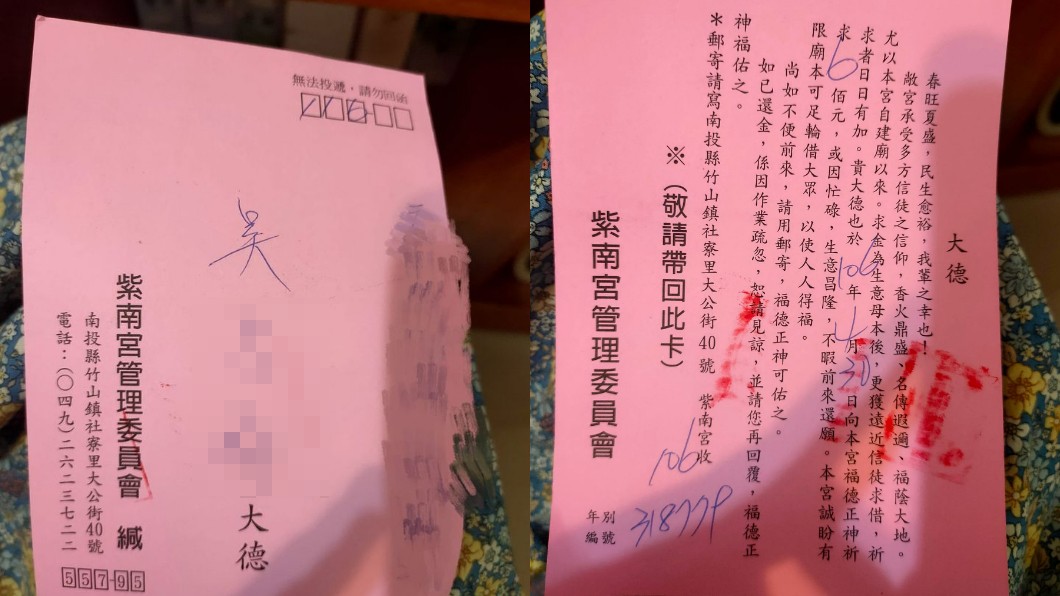 無法投遞，請勿回函
吳
大德
紫南宮管理委員會 緘
南投縣竹山鎮社寮里大公街40號
電話：(〇四九)二六二三七二二
557-95
大德
春旺夏盛，民生愈裕，我輩之幸也！
敝宮承受多方信徒之信仰，香火鼎盛、名傳遐邇、福蔭大地。
尤以本宮自建廟以來。求金為生意母本後，更獲遠近信徒求借，祈
求者日日有加。貴大德也於106年4月30日向本宮福德正神祈
求6佰元，或因忙碌，生意昌隆，不暇前來還願。本宮誠盼有
限廟本可足輪借大眾，以使人人得福。
尚如不便前來，請用郵寄，福德正神可佑之。
如已還金，係因作業疏忽，恕請見諒，並請您再回覆，福德正
神福佑之。
＊郵寄請寫南投縣竹山鎮社寮里大公街40號 紫南宮收
※（敬請帶回此卡）
紫南宮管理委員會
年別 106
編號 318779